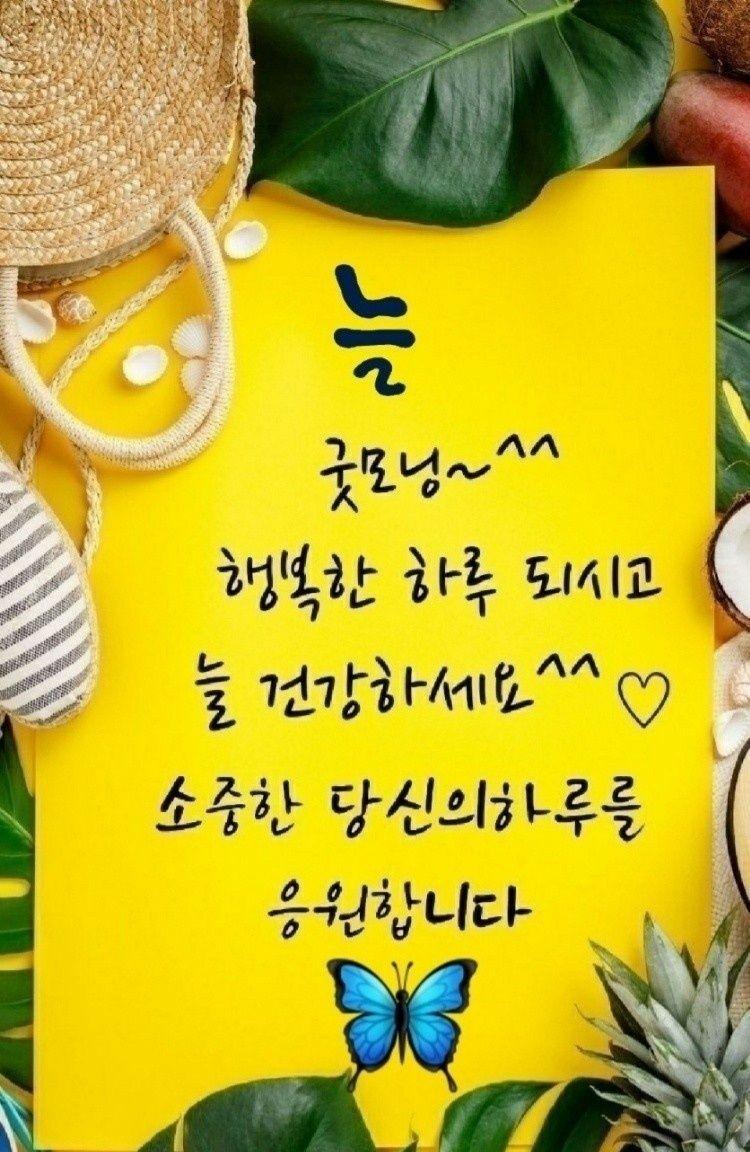 늘
굿모닝~^^
행복한 하루 되시고
늘 건강하세요^^♡
소중한 당신의하루를
응원합니다